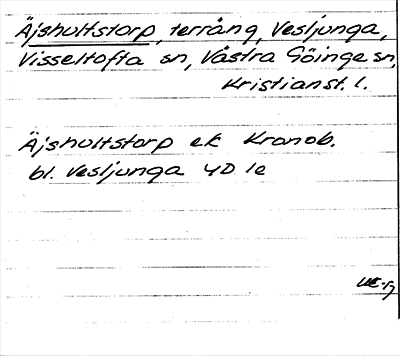 Äjshultstorp, terräng, Vesljunga,
Visseltofta sn, Västra Göinge sn,
Kristianst. l.
Äjshultstorp ek Kronob.
bl. Vesljunga 4D 1e